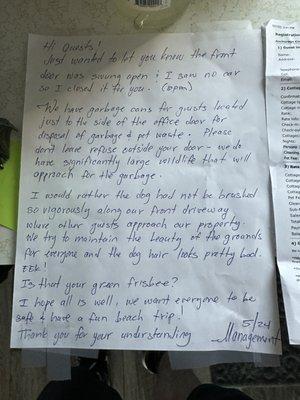 Hi Guests!
Just wanted to let you know the front
door was swung open & I saw no car
so I closed it for you. (10pm)
We have garbage cans for guests located
just to the side of the office door for
disposal of garbage & pet waste. Please
don't leave refuse outside your door - we do
have significantly large wildlife that will
approach for the garbage.
I would rather the dog had not be brushed
so vigorously along our front driveway
where other guests approach our property.
We try to maintain the beauty of the grounds
for everyone and the dog hair looks pretty bad.
EEK!
Is that your green frisbee?
I hope all is well, we want everyone to be
safe & have a fun beach trip! 5/24
Thank you for your understanding Management
Registration
1) Guest
Name:
Address:
2) Cottage